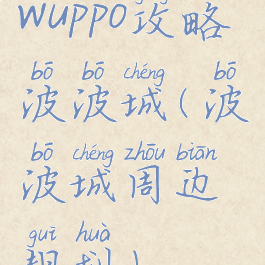 wuppo攻略
bō bō chéng bō
波波城(波
bō chéng zhōu biān
波城周边
guī huà
规划)